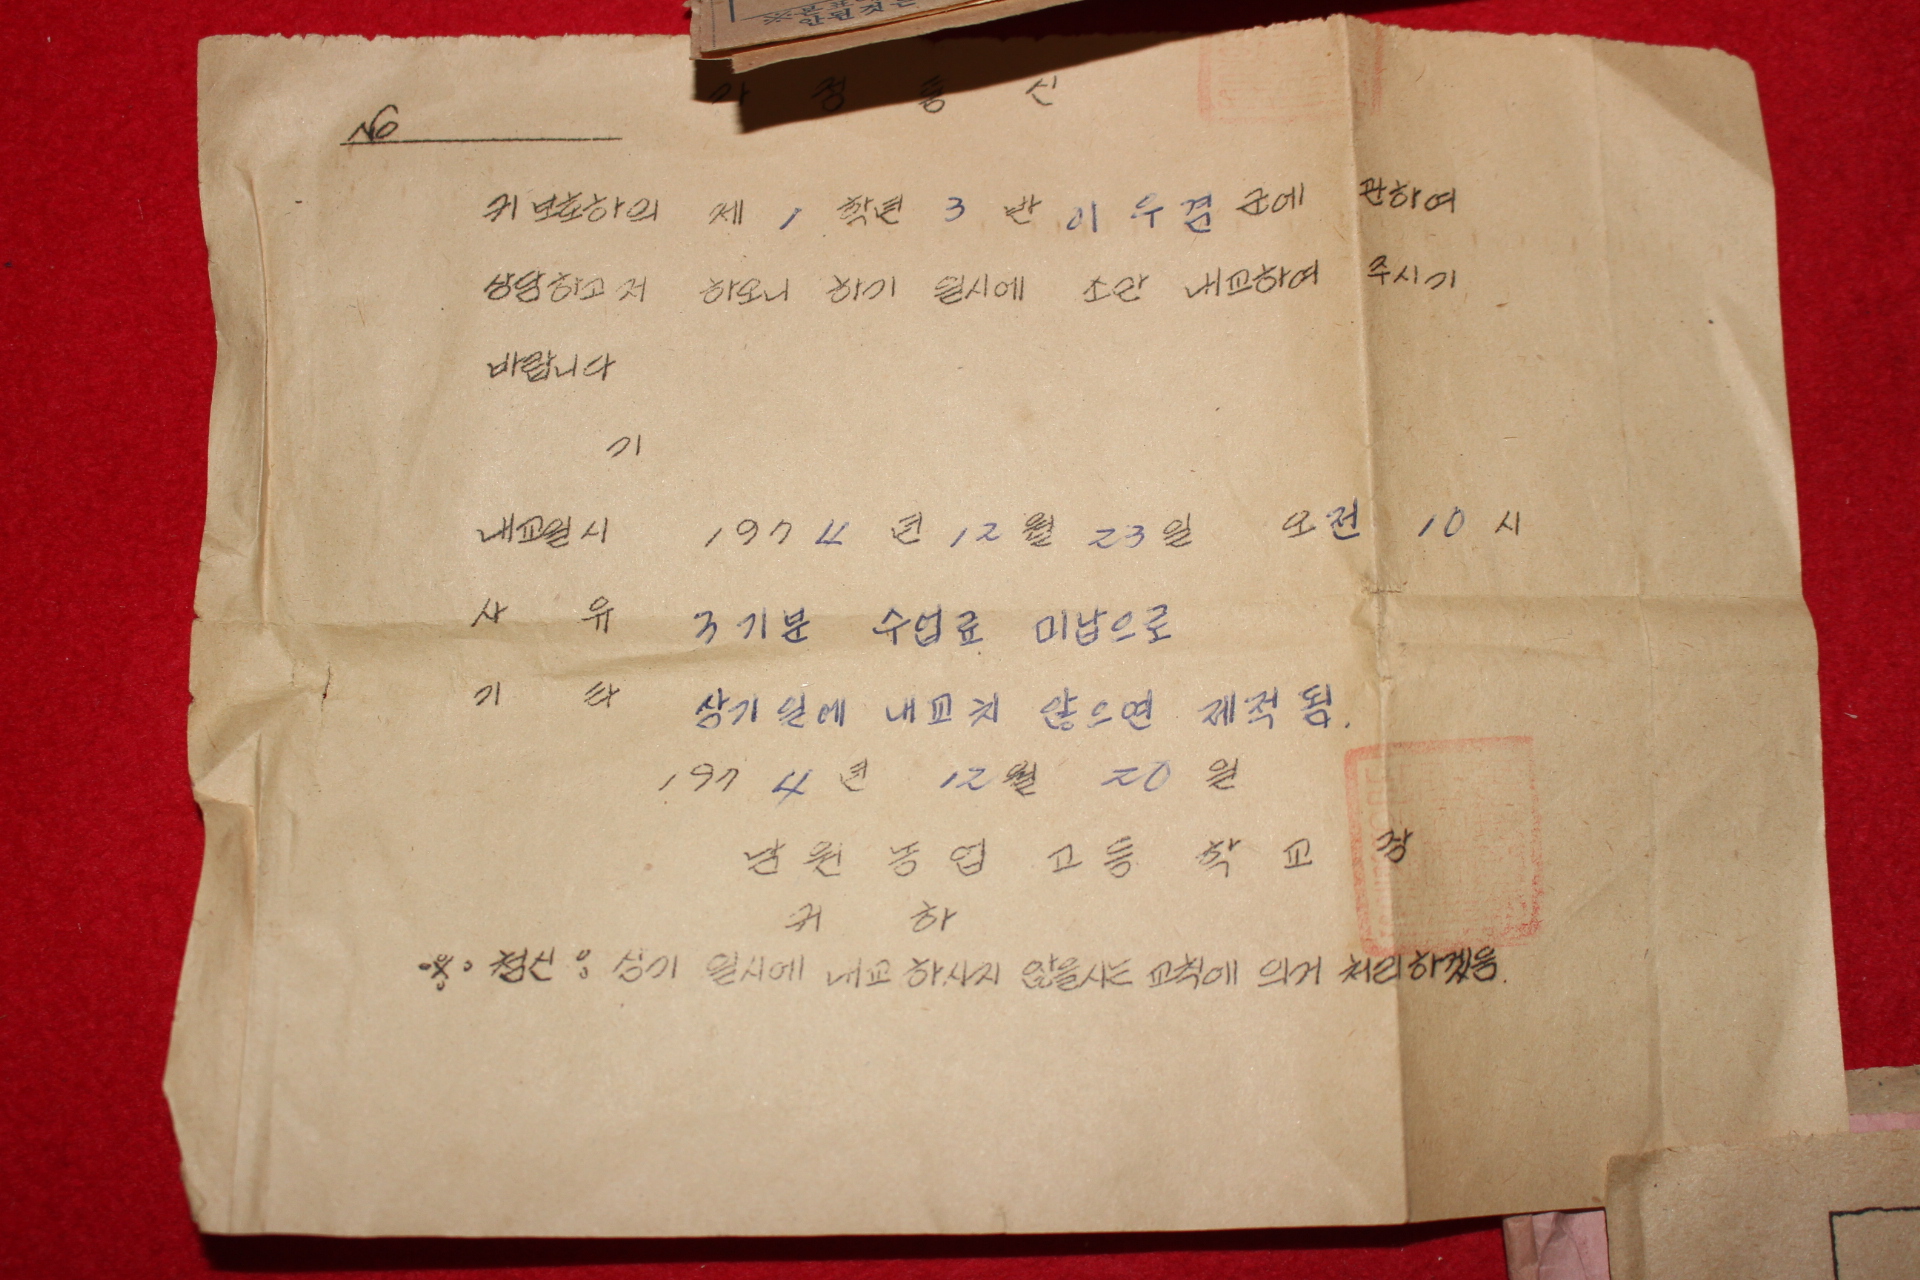 안된것은
가 정 통 신
No
귀 보호하의 제 1 학년 3 반 이 우 겸 군에 관하여
상담하고저 하오니 하기 일시에 소만 내교하여 주시기
바랍니다
기
내교일시 1974 년 12 월 23 일 오전 10 시
사 유 3기분 수업료 미납으로
기 타 상기일에 내교치 않으면 제적됨.
1974년 12월 20일
남 원 농 업 고 등 학 교 장
귀 하
※ 첨신 : 상기 일시에 내교 하시지 않을시는 교칙에 의거 처리하겠음.